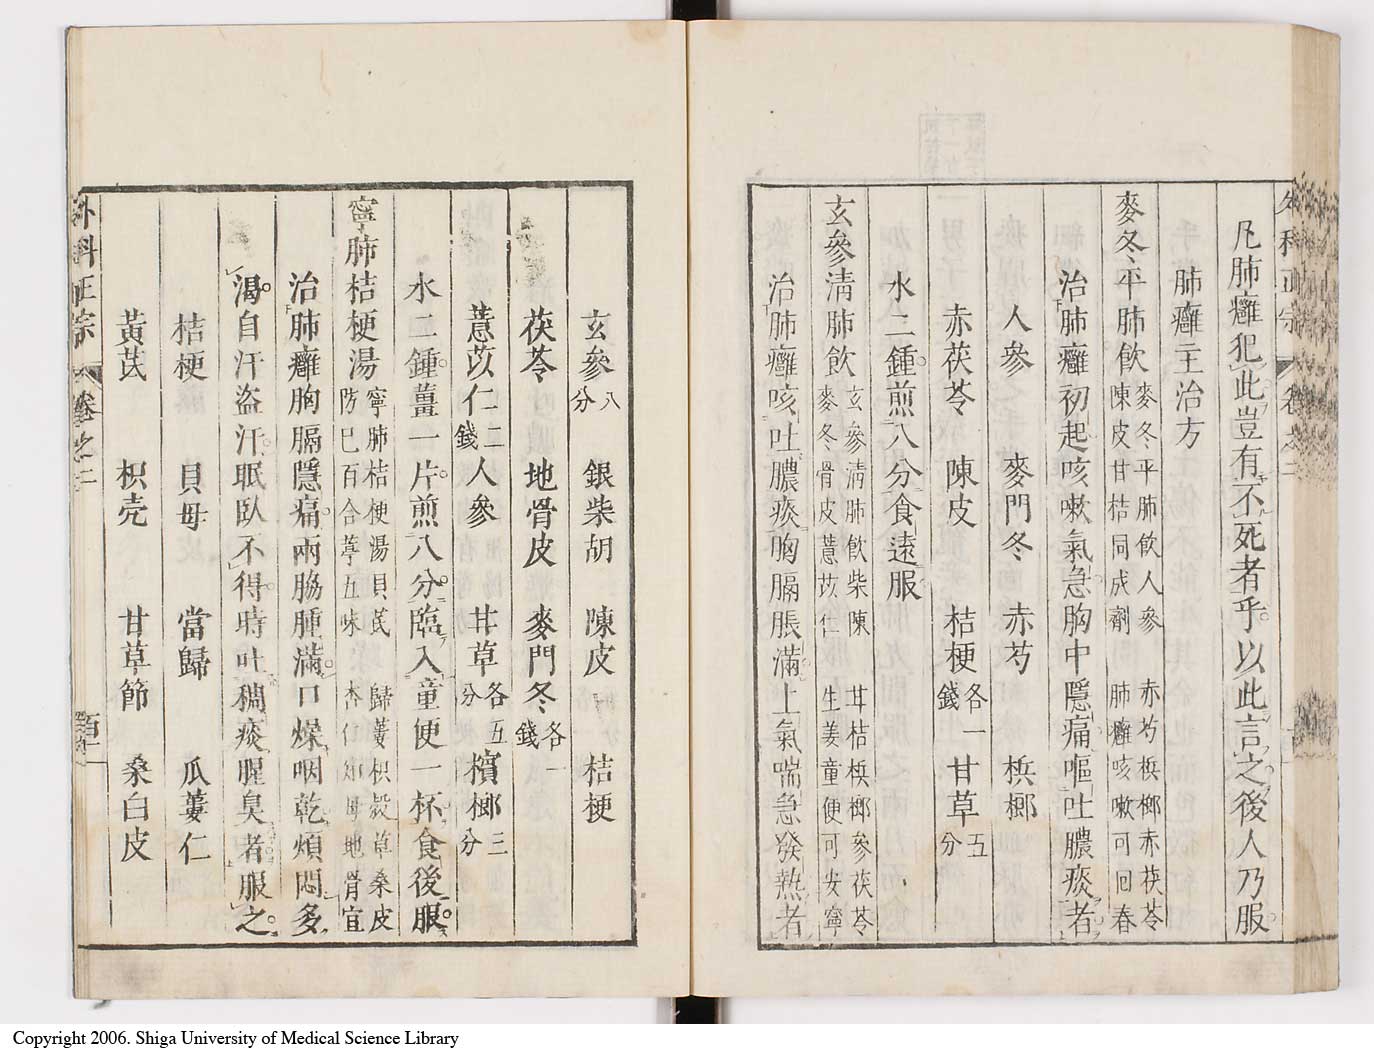 外科正宗 卷之二
凡肺癰犯此豈有不死者乎以此言之後人乃服
肺癰主治方
麥冬平肺飲 麥冬平肺飲人參 赤芍梹榔赤茯苓 陳皮甘桔同成劑 肺癰咳嗽可回春
治肺癰初起咳嗽氣急胸中隱痛嘔吐膿痰者
人參 麥門冬 赤芍 梹榔
赤茯苓 陳皮 桔梗各一錢 甘草五分
水二鍾煎八分食遠服
玄參清肺飲 玄參清肺飲柴陳 甘桔梹榔參茯苓 麥冬骨皮薏苡仁 生姜童便可安寧
治肺癰咳吐膿痰胸膈脹滿上氣喘急發熱者
玄參八分 銀柴胡 陳皮 桔梗
茯苓 地骨皮 麥門冬各一錢
薏苡仁二錢 人參 甘草各五分 檳榔三分
水二鍾薑一片煎八分臨入童便一杯食後服
寧肺桔梗湯 寧肺桔梗湯貝芪 歸蔞枳殼草桑皮 防已百合葶五味 杏仁知母地骨宜
治肺癰胸膈隱痛兩脇腫滿口燥咽乾煩悶多
渴自汗盜汗眠臥不得時吐稠痰腥臭者服之
桔梗 貝母 當歸 瓜蔞仁
黃芪 枳壳 甘草節 桑白皮
外科正宗 卷之二 百一
Copyright 2006. Shiga University of Medical Science Library